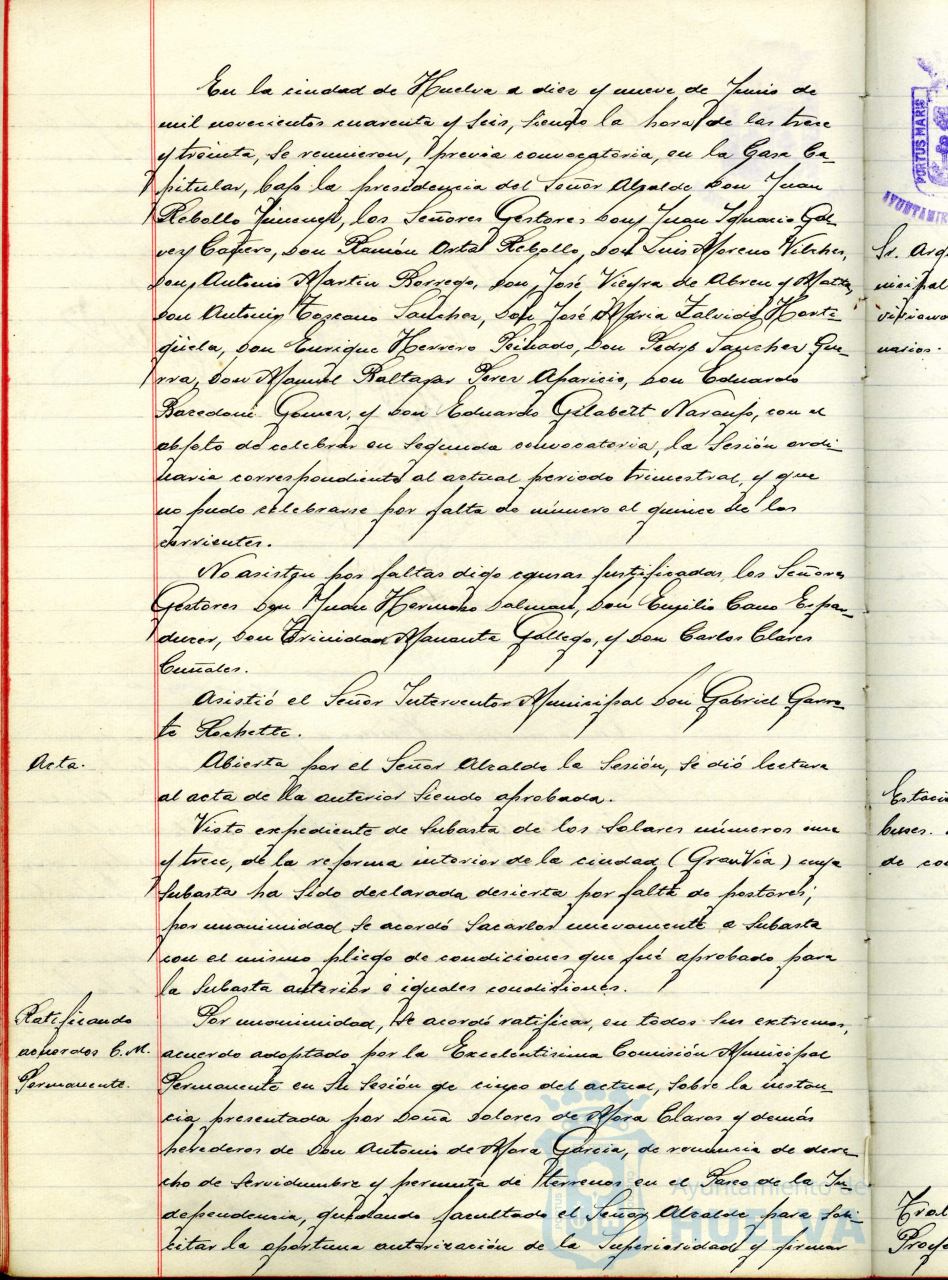 En la ciudad de Huelva a diez y nueve de Junio de
mil novecientos cuarenta y seis, siendo la hora de las trece
y treinta, se reunieron, previa convocatoria, en la Casa Ca-
pitular, bajo la presidencia del Señor Alcalde Don Juan
Rebollo Jimenez, los Señores Gestores Don Juan Ignacio Gál-
vez Cañero, Don Ramón Orta Rebollo, Don Luis Moreno Vilches,
Don Antonio Martin Borrego, Don José Vieyra de Abreu y Motta,
Don Antonio Toscano Sanchez, Don José Maria Zalvide Horti-
güela, Don Enrique Herrero Peinado, Don Pedro Sanchez Gue-
rra, Don Manuel Baltasar Perez Aparicio, Don Eduardo
Bozedoni Gomez, y Don Eduardo Gilabert Naranjo, con el
objeto de celebrar en segunda convocatoria, la Sesión ordi-
naria correspondiente al actual periodo trimestral, y que
no pudo celebrarse por falta de número el quince de los
corrientes.
No asisten por faltas digo causas justificadas, los Señores
Gestores Don Juan Hermoso Dalman, Don Emilio Cano
Don Trinidad Gallego, y Don Carlos Clares
Asistió el Señor Interventor Municipal Don Gabriel Garro-
te Rochette.
Acta.
Abierta por el Señor Alcalde la Sesión, se dió lectura
al acta de la anterior siendo aprobada.
Visto expediente de subasta de los solares números once
y trece, de la reforma interior de la ciudad (Gran Vía) cuya
subasta ha sido declarada desierta por falta de postores;
por unanimidad se acordó sacarlos nuevamente a subasta
con el mismo pliego de condiciones que fué aprobado para
la subasta anterior e iguales condiciones.
Ratificando
acuerdos C.M.
Permanente.
Por unanimidad, se acordó ratificar, en todos sus extremos,
acuerdo adoptado por la Excelentisima Comisión Municipal
Permanente en su sesión de cinco del actual, sobre la instan-
cia presentada por Doña Dolores de Mora Claros y demás
herederos de Don Antonio de Mora Garcia, de renuncia de dere-
cho de servidumbre y permuta de terrenos en el Paseo de la In-
dependencia, quedando facultado el Señor Alcalde para soli-
citar la oportuna autorización de la Superioridad y firmar
PORTUS MARIS
AYUNTAMIE
Sr. Arq
nicipal
varios.
Estacio
buses.
de co
Tral
Proye
Ayuntamiento de
HUELVA